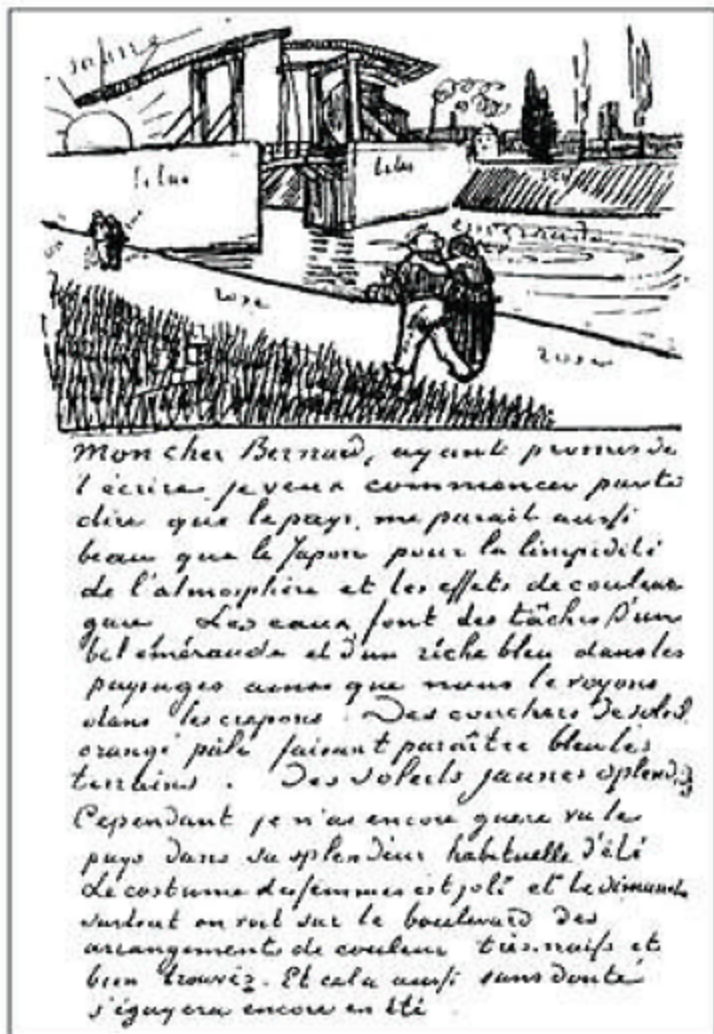 lilas
lilas
rose
rose
Mon cher Bernard, ayant promis de
t'écrire je veux commencer par te
dire que le pays me parait aussi
beau que le Japon pour la limpidité
de l'atmosphère et les effets de couleur
gaie. Les eaux font des tâches d'un
bel éméraude et d'un riche bleu dans les
paysages ainsi que nous le voyons
dans les crepons. Des couchers de soleil
orangé pâle faisant paraître bleu les
terrains. Des soleils jaunes splendides
Cependant je n'ai encore guere vu le
pays dans sa splendeur habituelle d'été
Le costume des femmes est joli et le dimanche
surtout on voit sur le boulevard des
arrangements de couleur très naifs et
bien trouvés. Et cela aussi sans doute
s'égayera encore en été